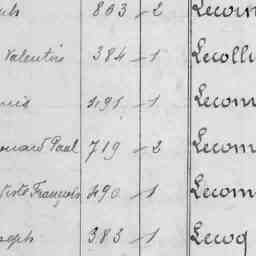 803 2 Lecoin
Valentin 384 1 Lecolli
491 1 Lecom
Paul 719 2 Lecom
François 490 1 Lecom
seph 383 1 Lecoq